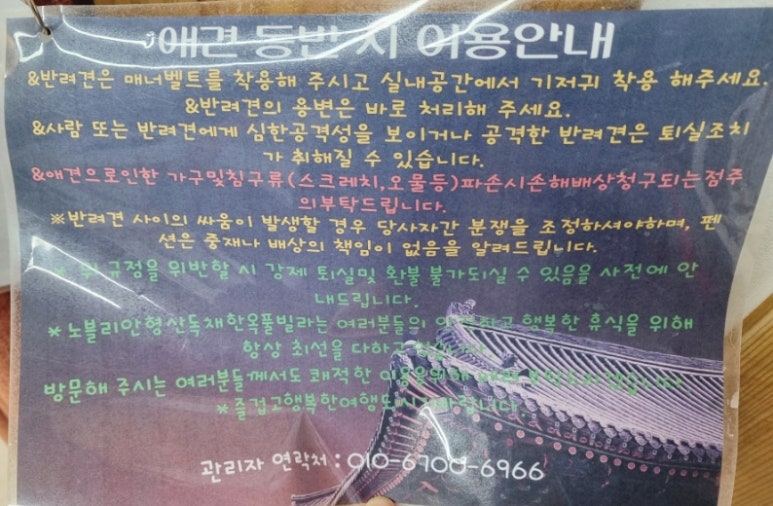 애견 동반 시 이용안내
&반려견은 매너벨트를 착용해 주시고 실내공간에서 기저귀 착용 해주세요.
&반려견의 용변은 바로 처리해 주세요.
&사람 또는 반려견에게 심한공격성을 보이거나 공격한 반려견은 퇴실조치
가 취해질 수 있습니다.
&애견으로인한 가구및침구류(스크레치,오물등)파손시손해배상청구되는점주
의부탁드립니다.
※반려견 사이의 싸움이 발생할 경우 당사자간 분쟁을 조정하셔야하며, 펜
션은 중재나 배상의 책임이 없음을 알려드립니다.
* 위 규정을 위반할 시 강제 퇴실및 환불 불가되실 수 있음을 사전에 안
내드립니다.
*노블리안형산독채한옥풀빌라는 여러분들의 행복한 휴식을 위해
항상 최선을 다하고
방문해 주시는 여러분들께서도 쾌적한 이용을위해
*즐겁고행복한여행되시기바랍니다.
관리자 연락처 : 010-6900-6966